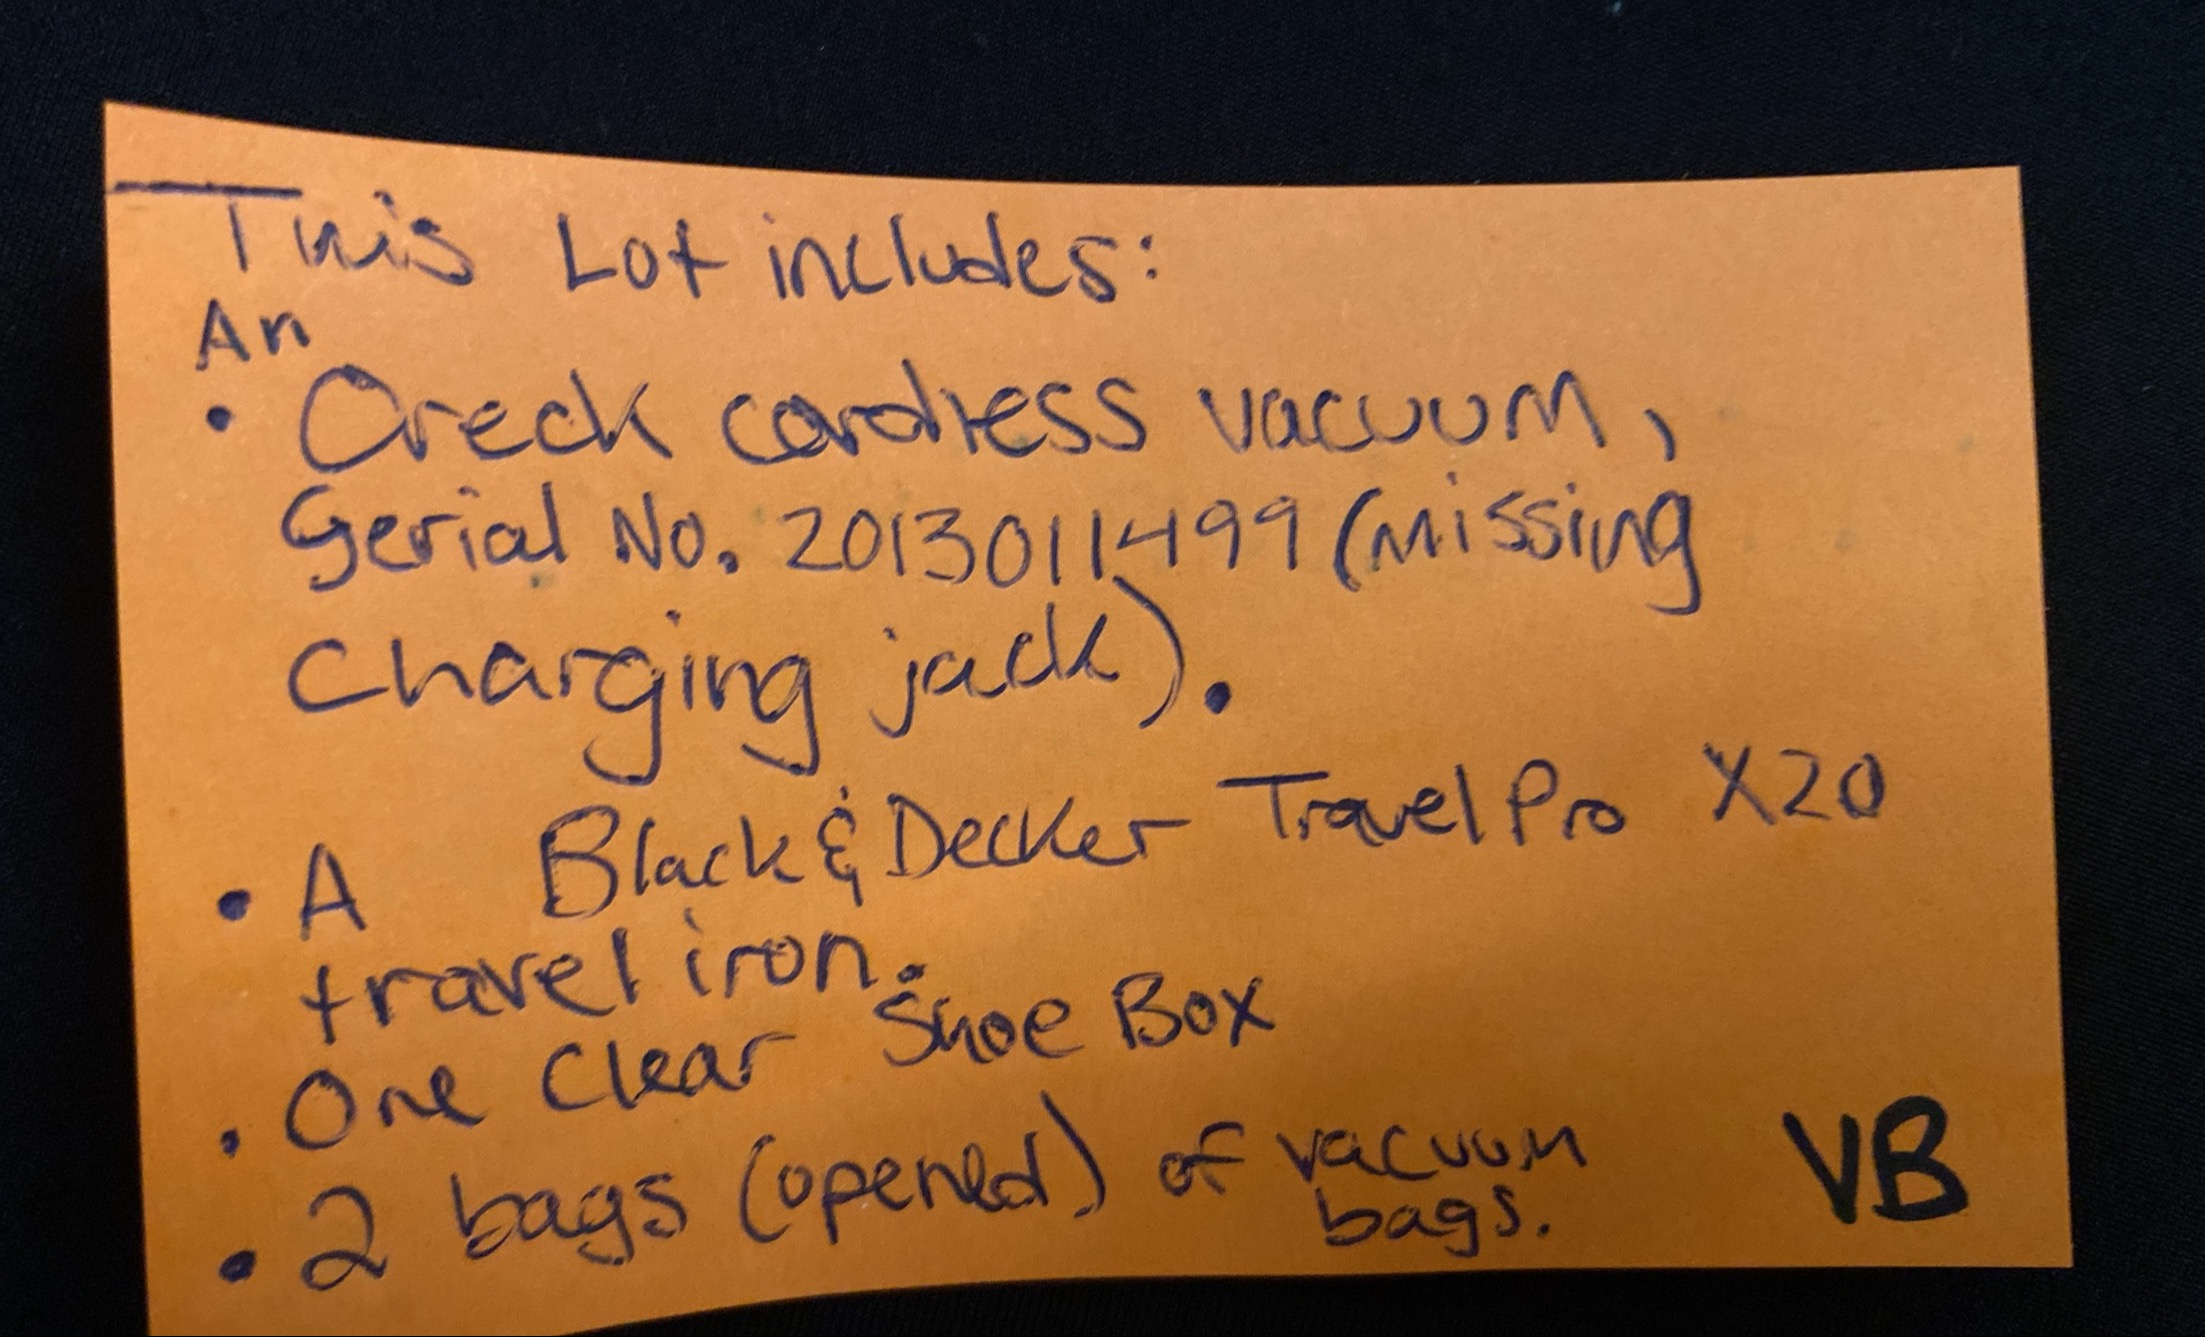 This Lot includes:
An
• Oreck cordless vacuum,
Serial No. 2013011499 (missing
charging jack).
• A Black & Decker Travel Pro X20
travel iron.
• One Clear Shoe Box
• 2 bags (opened) of vacuum
bags.
VB